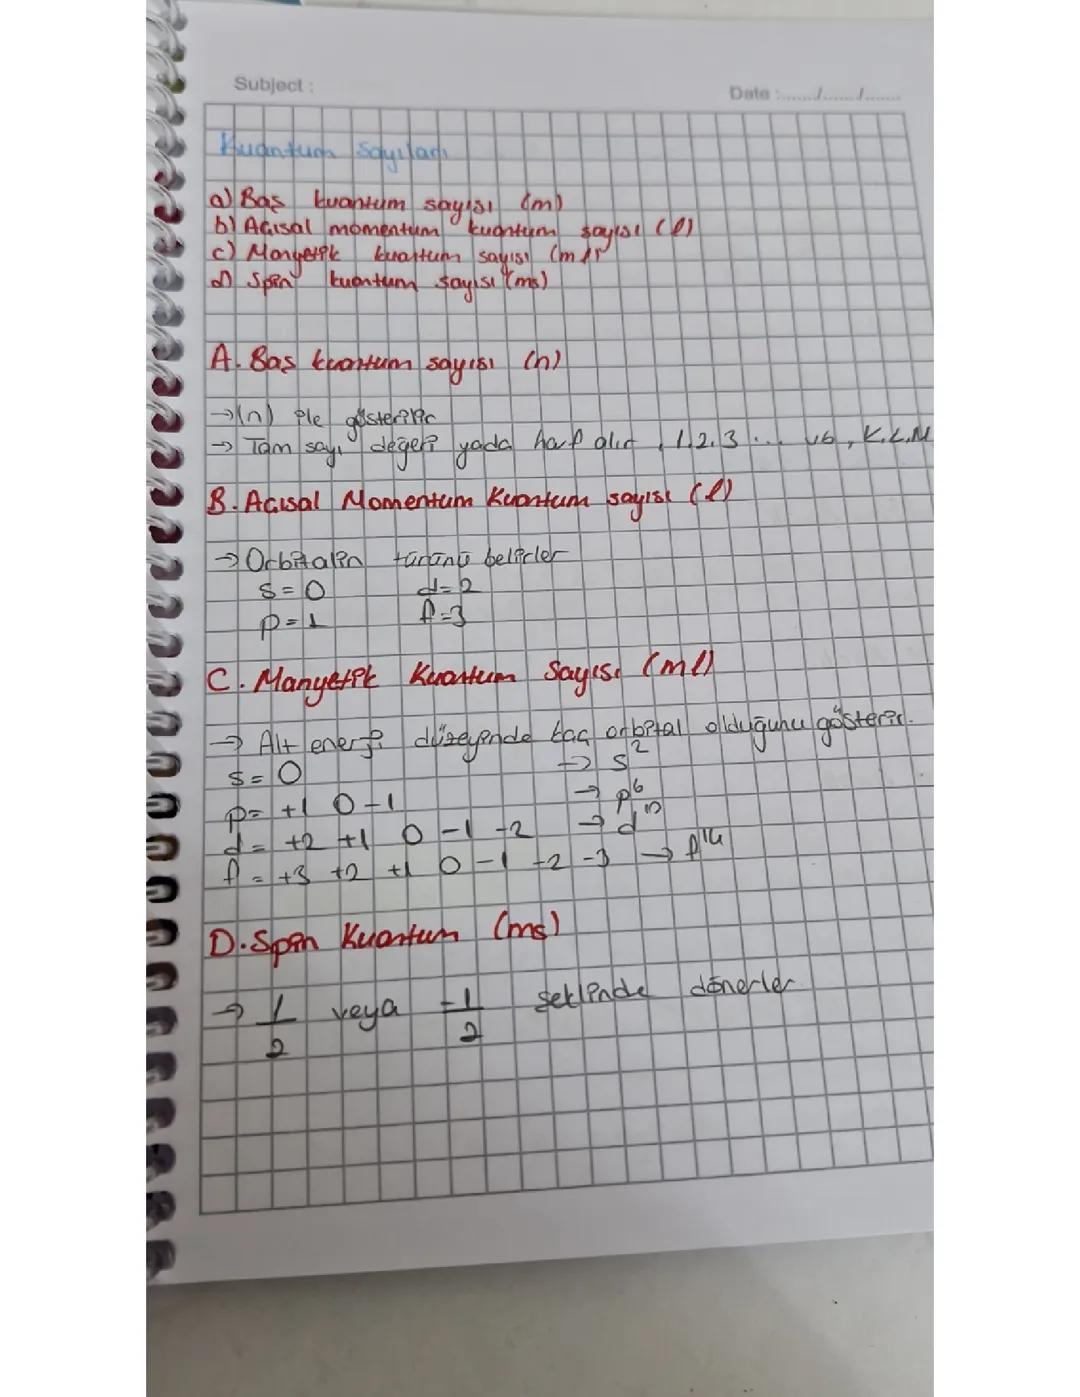 Subject :
Date :......./......./.......
Kuantum Sayıları
a) Baş kuantum sayısı (m)
b) Açısal momentum kuantum sayısı (l)
c) Manyetik kuantum sayısı (ml)
d) Spin kuantum sayısı (ms)
A. Baş kuantum sayısı (n)
→ (n) ile gösterilir
→ Tam sayı değeri yada harf alır, 1.2.3 ... vb, K.L.M
B. Açısal Momentum Kuantum sayısı (l)
→ Orbitalin türünü belirler
s = 0 d = 2
p = 1 f = 3
C. Manyetik Kuantum Sayısı (ml)
→ Alt enerji düzeyinde kaç orbital olduğunu gösterir.
s = 0 → s²
p = +1 0 -1 → p⁶
d = +2 +1 0 -1 -2 → d¹⁰
f = +3 +2 +1 0 -1 -2 -3 → f¹⁴
D. Spin Kuantum (ms)
→ 1/2 veya -1/2 şeklinde dönerler